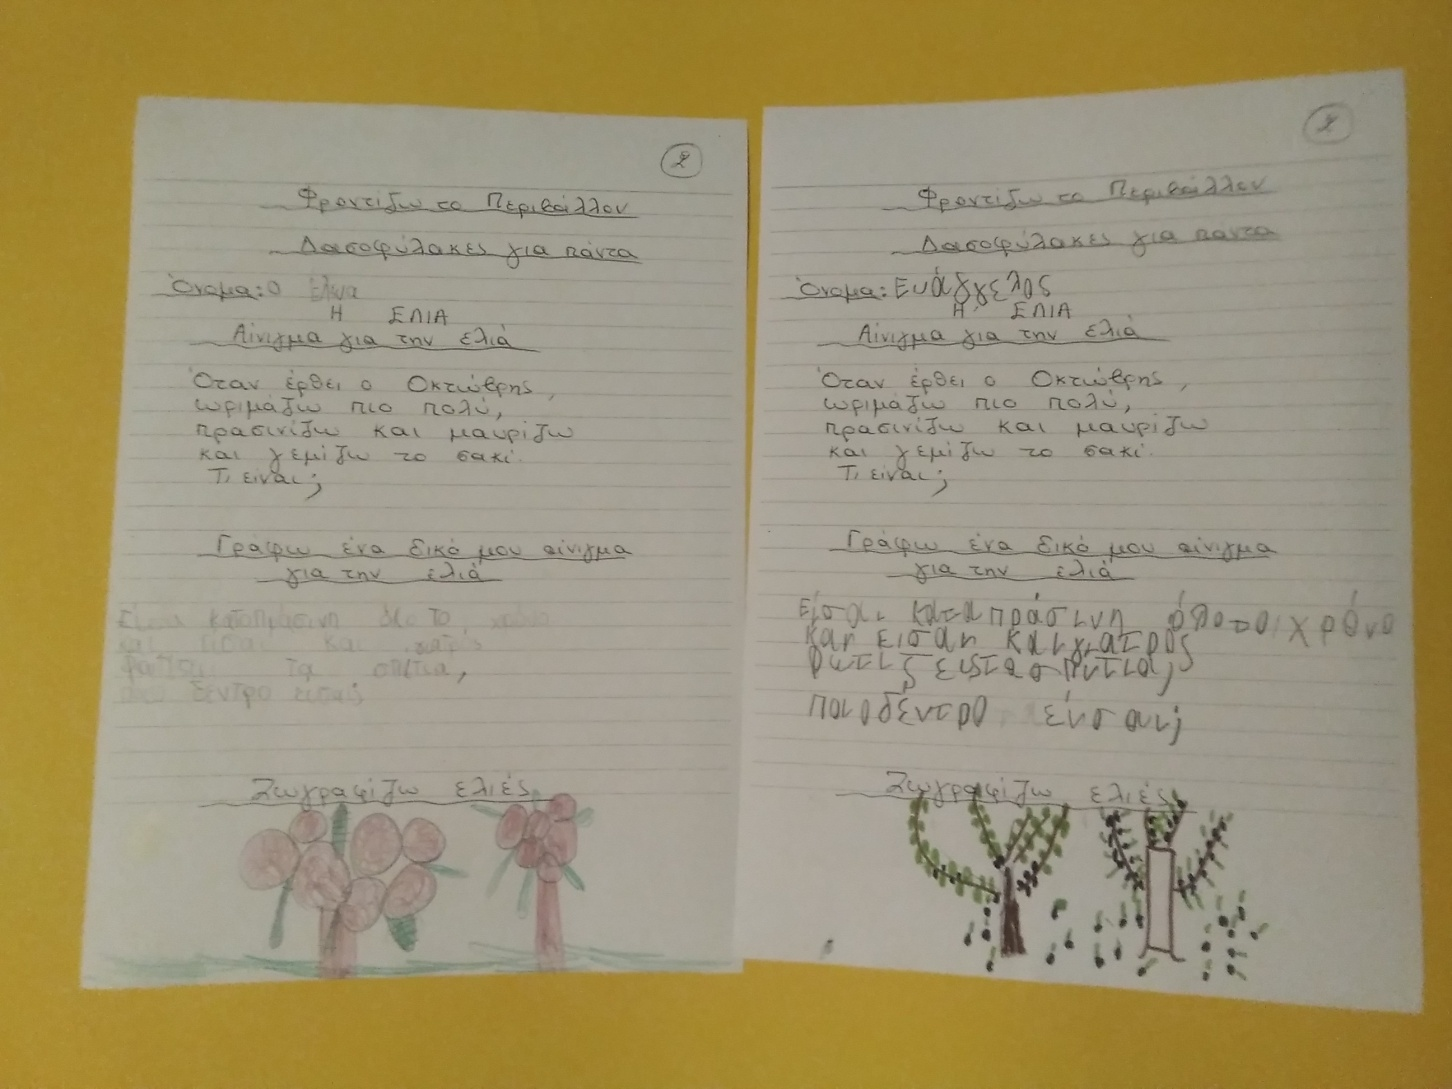 2
Φροντίζω το Περιβάλλον
Δασοφύλακες για πάντα
Όνομα: Ο
Η ΕΛΙΑ
Αίνιγμα για την ελιά
Όταν έρθει ο Οκτώβρης,
ωριμάζω πιο πολύ,
πρασινίζω και μαυρίζω
και γεμίζω το σακί.
Τι είναι;
Γράφω ένα δικό μου αίνιγμα
για την ελιά
καταπράσινη όλο το χρόνο
και είσαι και
τα σπίτια,
δέντρο είσαι;
Ζωγραφίζω ελιές
2
Φροντίζω το Περιβάλλον
Δασοφύλακες για πάντα
Όνομα: Ευάγγελος
Η ΕΛΙΑ
Αίνιγμα για την ελιά
Όταν έρθει ο Οκτώβρης,
ωριμάζω πιο πολύ,
πρασινίζω και μαυρίζω
και γεμίζω το σακί.
Τι είναι;
Γράφω ένα δικό μου αίνιγμα
για την ελιά
Είσαι καταπράσινη χρόνο
καη εισαη και γιατρός
ποιο δέντρο
Ζωγραφίζω ελιές